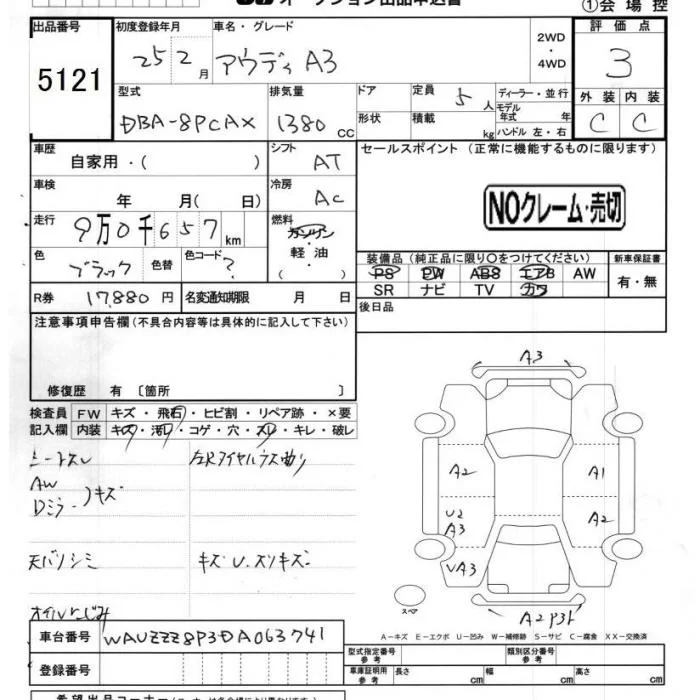 オークション出品申込書
①会場控
出品番号 初度登録年月 車名・グレード 2WD・4WD 評価点
5121 25 2月 アウディ A3 3
型式 排気量 ドア 定員 5人 ディーラー・並行 外装 内装
DBA-8PCAX 1380 CC 形状 積載 kg モデル年式 年 ハンドル 左・右 C C
車歴 自家用・( ) シフト AT セールスポイント (正常に機能するものに限ります)
車検 年 月( 日) 冷房 AC
NOクレーム・売切
走行 9万0千657km 燃料 ガソリン・軽油 ( )
色 ブラック 色替 色コード ?
装備品 (純正品に限り○をつけてください) 新車保証書
PS PW ABS エアB AW 有・無
SR ナビ TV カワ
R券 17,880円 名変通知期限 月 日 後日品
注意事項申告欄 (不具合内容等は具体的に記入して下さい)
修復歴 有 〔箇所 〕
検査員 FW キズ・飛石・ヒビ割・リペア跡・×要
記入欄 内装 キズ・汚れ・コゲ・穴・スレ・キレ・破レ
シートスレ
AW
Dミラー キズ
天バリシミ キズ U.スリキズ
オイルにじみ
A3
A2 A1
U2 A3 A2
UA3
スペア
A2P3ト
A-キズ E-エクボ U-凹み W-補修跡 S-サビ C-腐食 XX-交換済
車台番号 WAUZZZ8P3DA063741
型式指定番号 参考 類別区分番号 参考
登録番号 車庫証明用 参考 長さ cm 幅 cm 高さ cm
希望出品コーナー